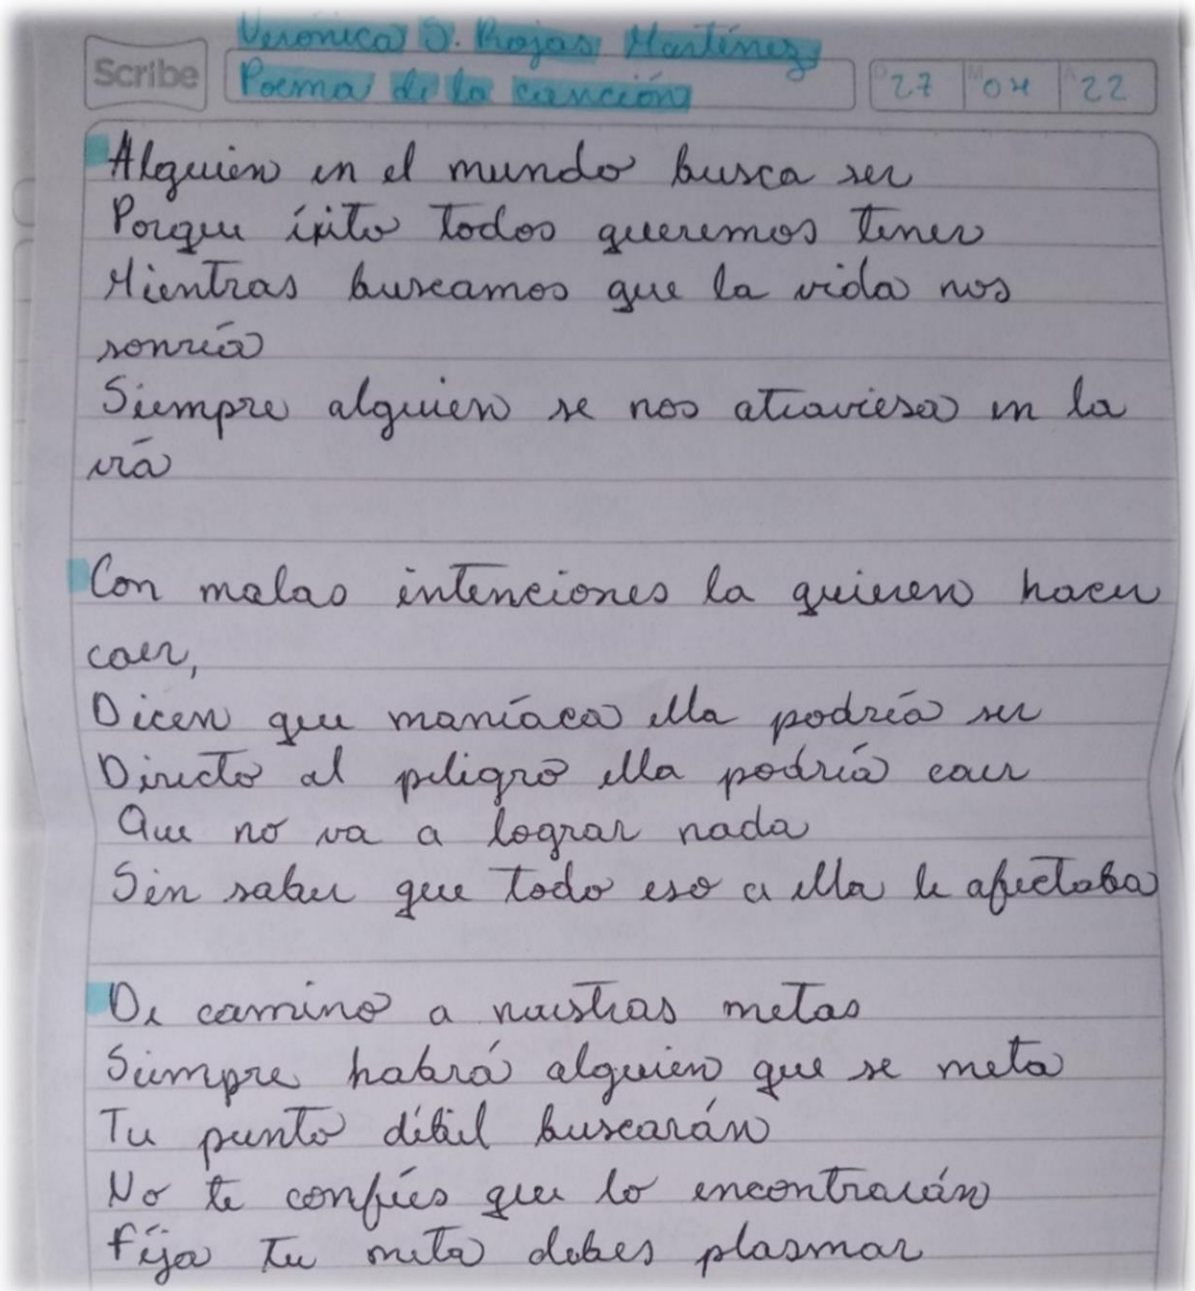 Verónica S. Rojas Martínez
Scribe
Poema de la canción
D 27 M 04 A 22
Alguien en el mundo busca ser
Porque éxito todos queremos tener
Mientras buscamos que la vida nos
sonría
Siempre alguien se nos atraviesa en la
vía
Con malas intenciones la quieren hacer
caer,
Dicen que maníaca ella podría ser
Directo al peligro ella podría caer
Que no va a lograr nada
Sin saber que todo eso a ella le afectaba
De camino a nuestras metas
Siempre habrá alguien que se meta
Tu punto débil buscarán
No te confíes que lo encontrarán
Fija tu meta debes plasmar